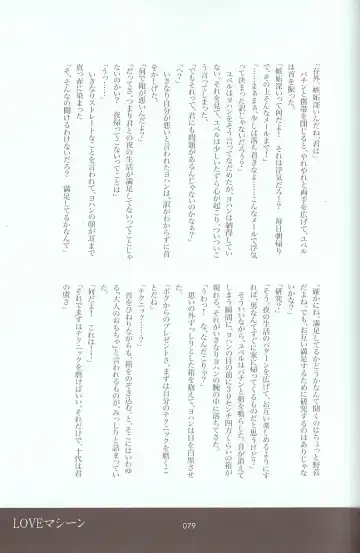 「存外、嫉妬深いんだね、君は」
　パチンと携帯を閉じると、やれやれと両手を広げて、ユベル
は首を振った。
「嫉妬深いって何だよ！　それは浮気だろ！？　毎日朝帰り
で、その上そんなメールまで」
「……まぁまぁ、少しは落ち着きなよ……こんなメールで浮気
って決まった訳じゃないだろう？」
　ユベルはヨハンをそう言ってなだめたが、ヨハンは納得してい
ない。それを見て、ユベルは少しいたずら心が起こり、ついついこ
う言ってしまった。
「それに、君の方にも問題があるんじゃないのかなぁ？」
「へ？」
　いきなり自分が悪いんだと言われてヨハンは、訳がわからずに首
をかしげる。
「何で俺が悪いんだよ？」
「だってさ、つまり君との夜の生活が満足してないってことじゃ
ないのかい？　夜帰ってこないってことは」
「うっ……」
　いきなりストレートなことを言われて、ヨハンの顔が耳まで
真っ赤に染まった。
「そ、そんなの聞けるわけないだろ？　満足してるかなんて」
「確かにね。満足してるかどうかなんて聞くのはちょっと野暮
だよね。でも、お互い満足するために研究するのはありじゃな
いかな？」
「研究？」
「そう。夜の生活のパターンを広げて、お互い楽しめるようにす
れば、男なんてすぐに家に帰ってくるものだと思うけどう？」
　そういいながら、ユベルはパチンと指を鳴らした。音が消えて
しまう瞬間に、ヨハンの目の前に３０センチ四方くらいの箱が
現れる。それがいきなりヨハンの腕の中に落ちてきた。
「うわっ！　な、なんだこりゃ？」
　思いの外ずっしりとした箱を抱えて、ヨハンは目を白黒させ
た。
「ボクからのプレゼントさ。まずは自分のテクニックを磨くこ
とだね」
「テクニック……？」
　首をひねりながらも、箱をのぞき込む。と、そこにはいわゆ
る「大人のおもちゃ」と言われるものが、みっしりと詰まってい
た。
「何だよ！　これは……！」
「それでまずはテクニックを磨けばいい。それだけで、十代は君
の虜さ」
LOVEマシーン
079